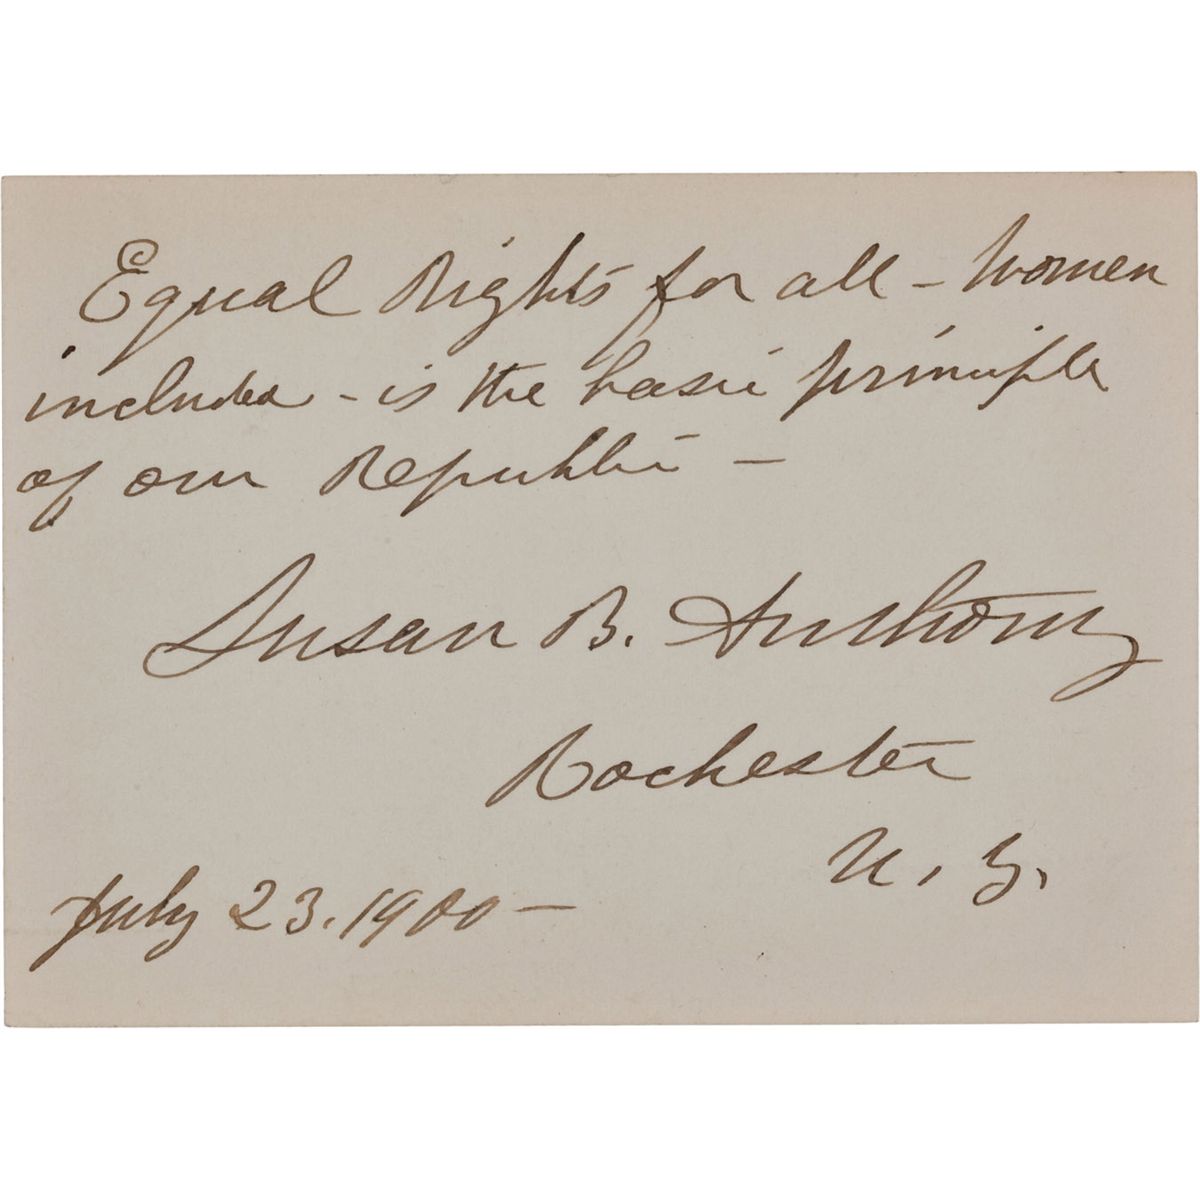 Equal Rights for all – Women
included – is the basic principle
of our Republic –
Susan B. Anthony
Rochester
N. Y.
July 23. 1900 –